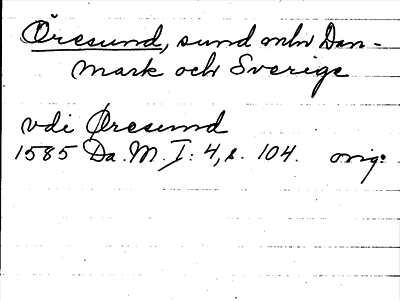 Öresund, sund mln Dan-
mark och Sverige
vdi Øresund
1585 Da. M. I: 4, s. 104. orig.